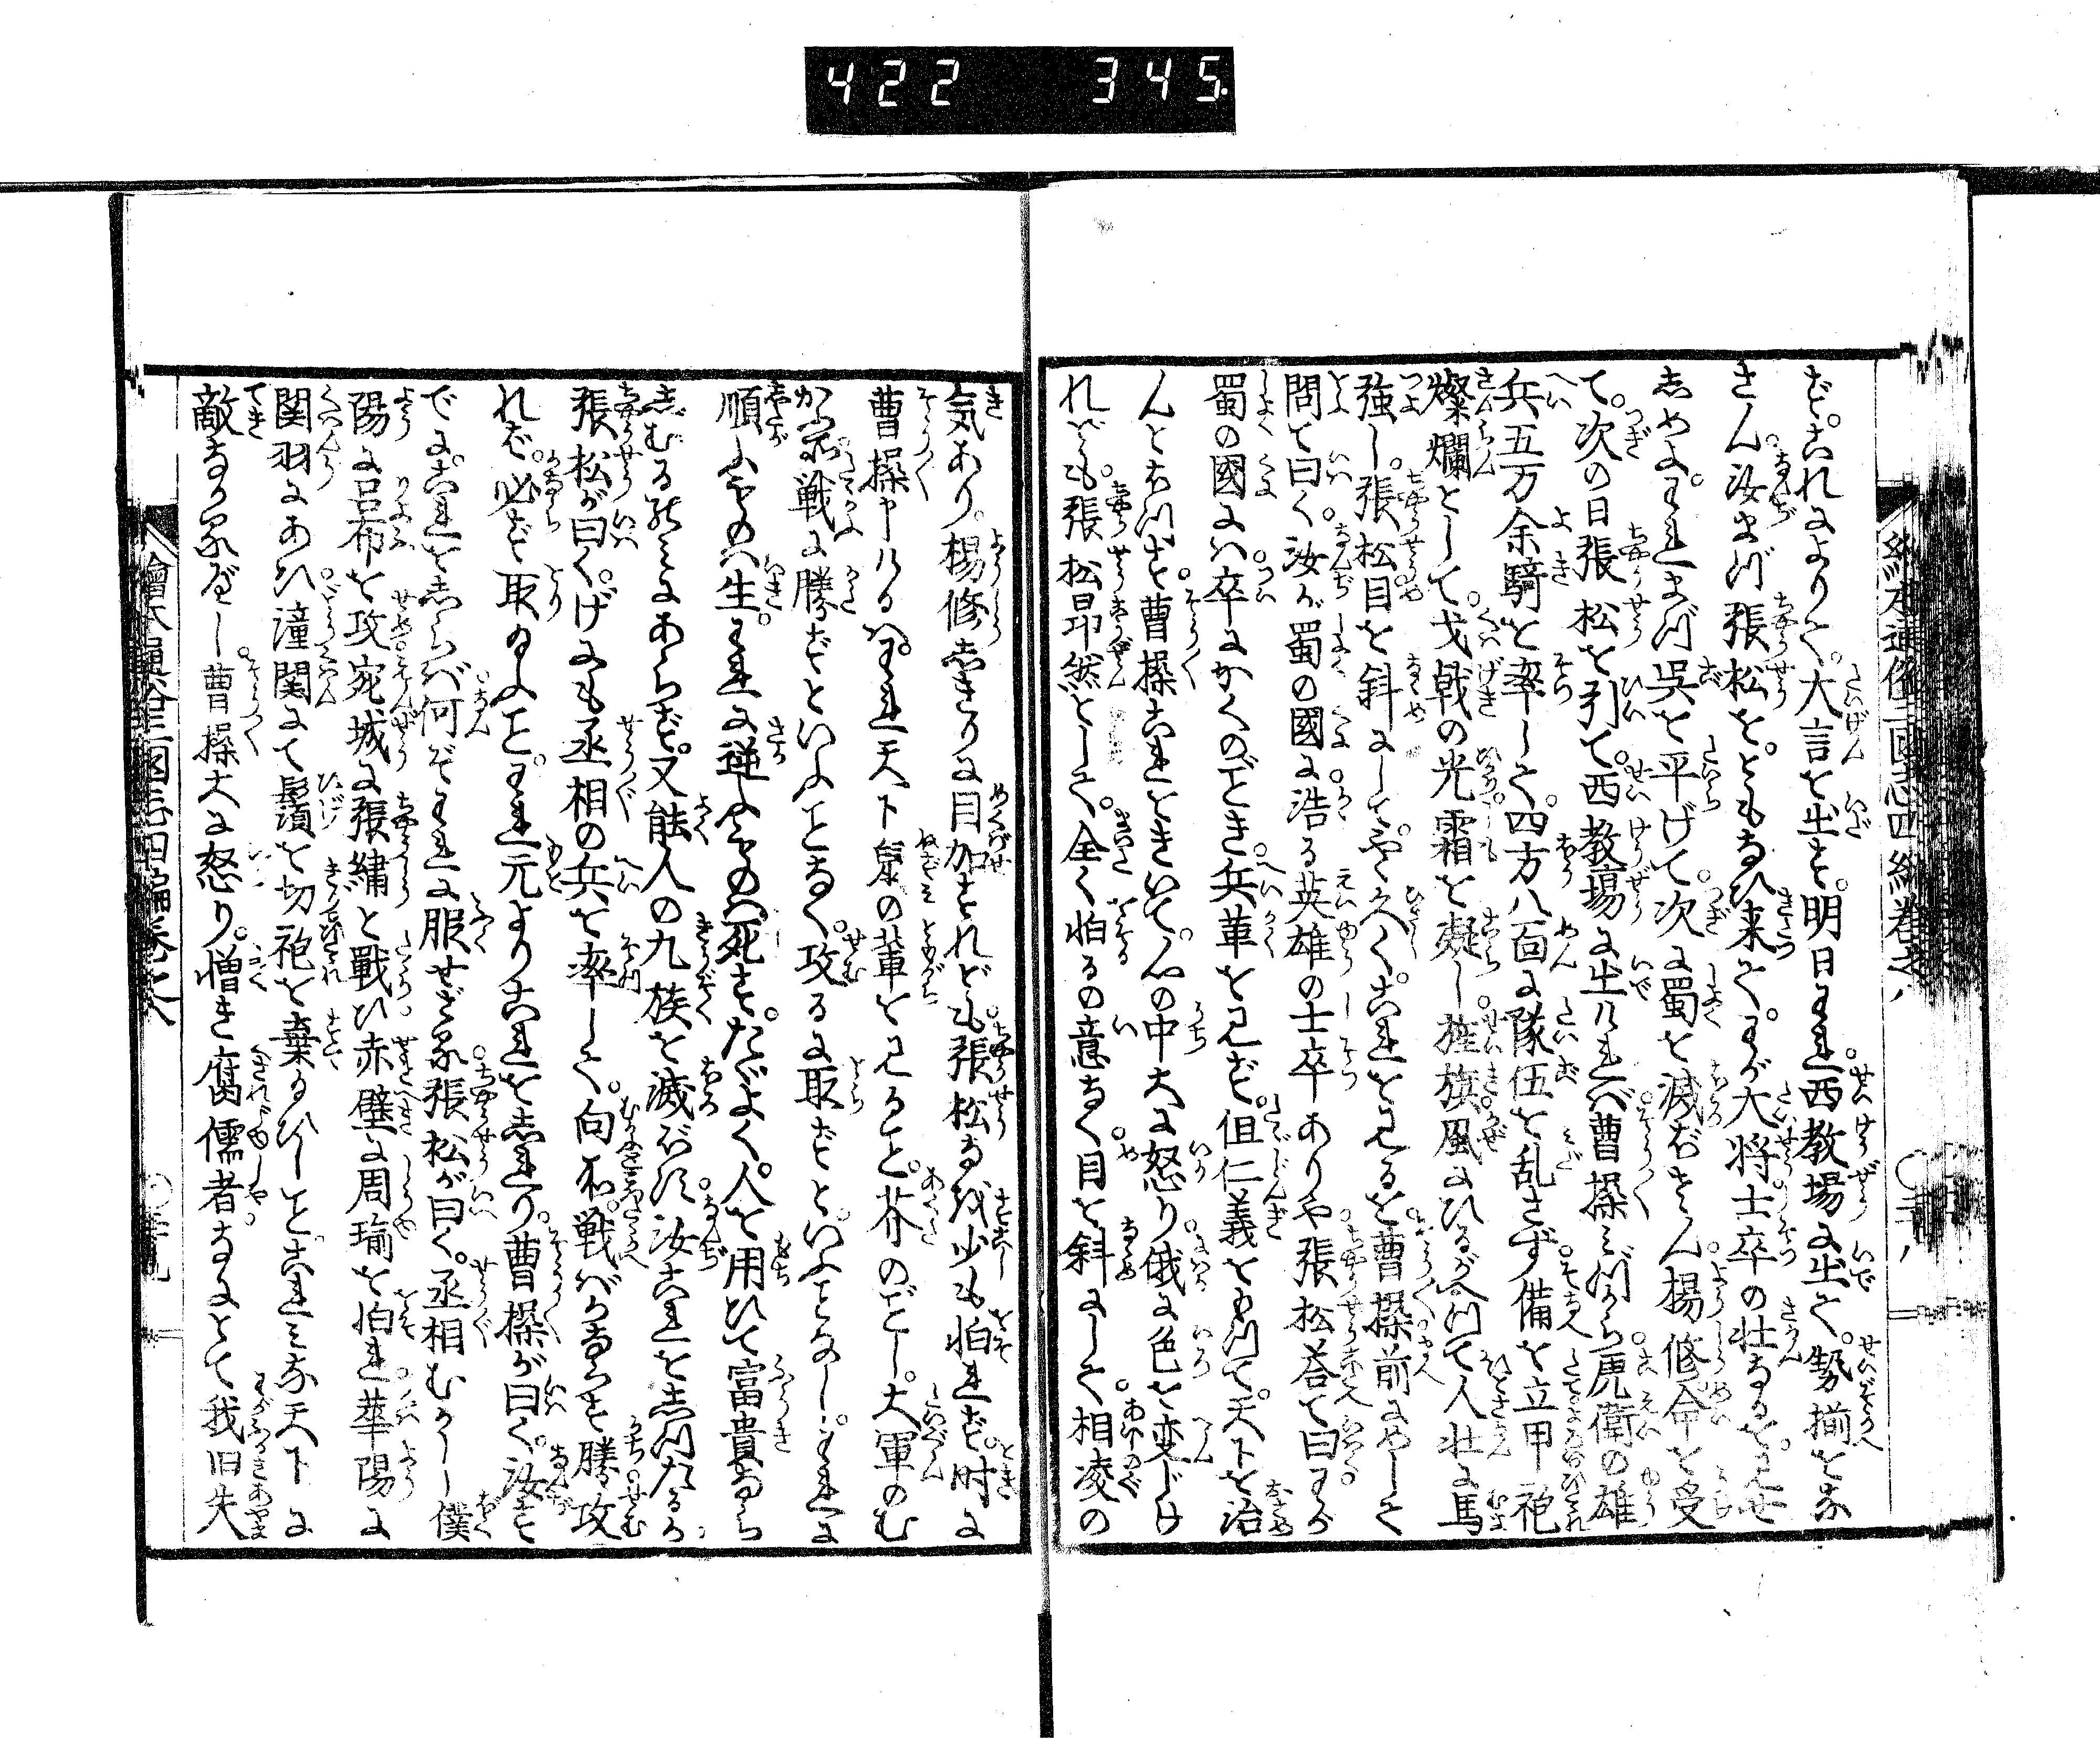 422 345
繪本通俗三國志四編卷之八
ず。これによりて。大言を出す。明日われ。西教場に出て。勢揃をな
さん。汝まづ張松を。ともなひ来て。わが大将士卒の壮なるを。見せ
しめよ。われまづ呉を平げて。次に蜀を滅ぼさん。楊修命を受
て。次の日張松を引て。西教場に出ければ。曹操みづから。虎衛の雄
兵五万余騎を率して。四方八面に隊伍を乱さず。備を立甲袍
燦爛として。戈戟の光霜を凝し。旌旗風にひるがへつて人壮に馬
強し。張松目を斜にして。やゝ久く。これを見るを。曹操前にめして
問て曰く。汝が蜀の國に。浩る英雄の士卒ありや。張松答て曰わが
蜀の國には。卒にかくのごとき。兵革を見ず。但仁義をもつて。天下を治
んとおもふを。曹操これをきいて。心の中大に怒り。俄に色を変じけ
れども。張松昂然として。全く怕るの意なく。目を斜にして。相凌の
気あり。楊修しきりに目加すれども。張松なほ少も怕れず。時に
曹操申けるは。われ天下鼠の輩を見ること。芥のごとし。大軍のむ
かふ所戦に勝ずといふことなく。攻るに取ずと。いふことなし。われに
順ふものは生。われに逆ふものは死す。たゞよく。人を用ひて富貴なら
しむるのみにあらず。又能人の九族を滅ぼす。汝これをしつたるか
張松が曰く。げにも丞相の兵を率して。向ふ所。戦ばかならず勝。攻
れば。必ず取給ふこと。われ元よりこれをしれり。曹操が曰く。汝す
でに。これをしらば。何ぞわれに服せざる。張松が曰く。丞相むかし僕
陽に呂布を攻。宛城に張繍と戰ひ。赤壁に周瑜を怕れ。華陽に
関羽にあひ。潼関にて鬚を切袍を棄給ひしこと。これみな天下に
敵なき処なるべし。曹操大に怒り。憎き腐儒者。なにとて我旧失
繪本通俗三國志四編卷之八